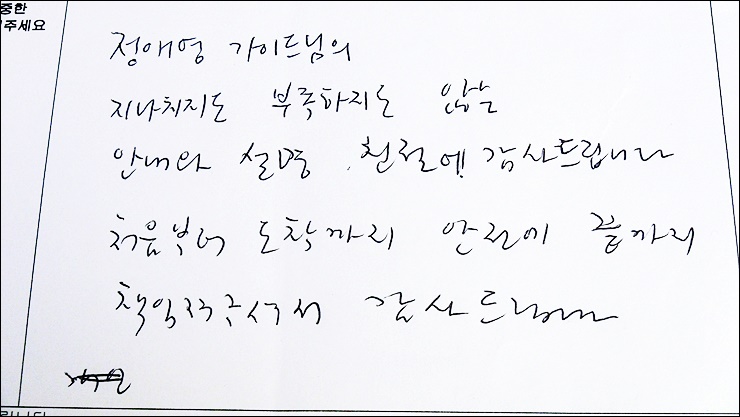 중한
주세요
정애영 가이드님의
지나치지도 부족하지도 않는
안내와 설명, 친절에 감사드립니다
처음부터 도착까지 안전에 끝까지
책임져주셔서 감사드립니다
립니다